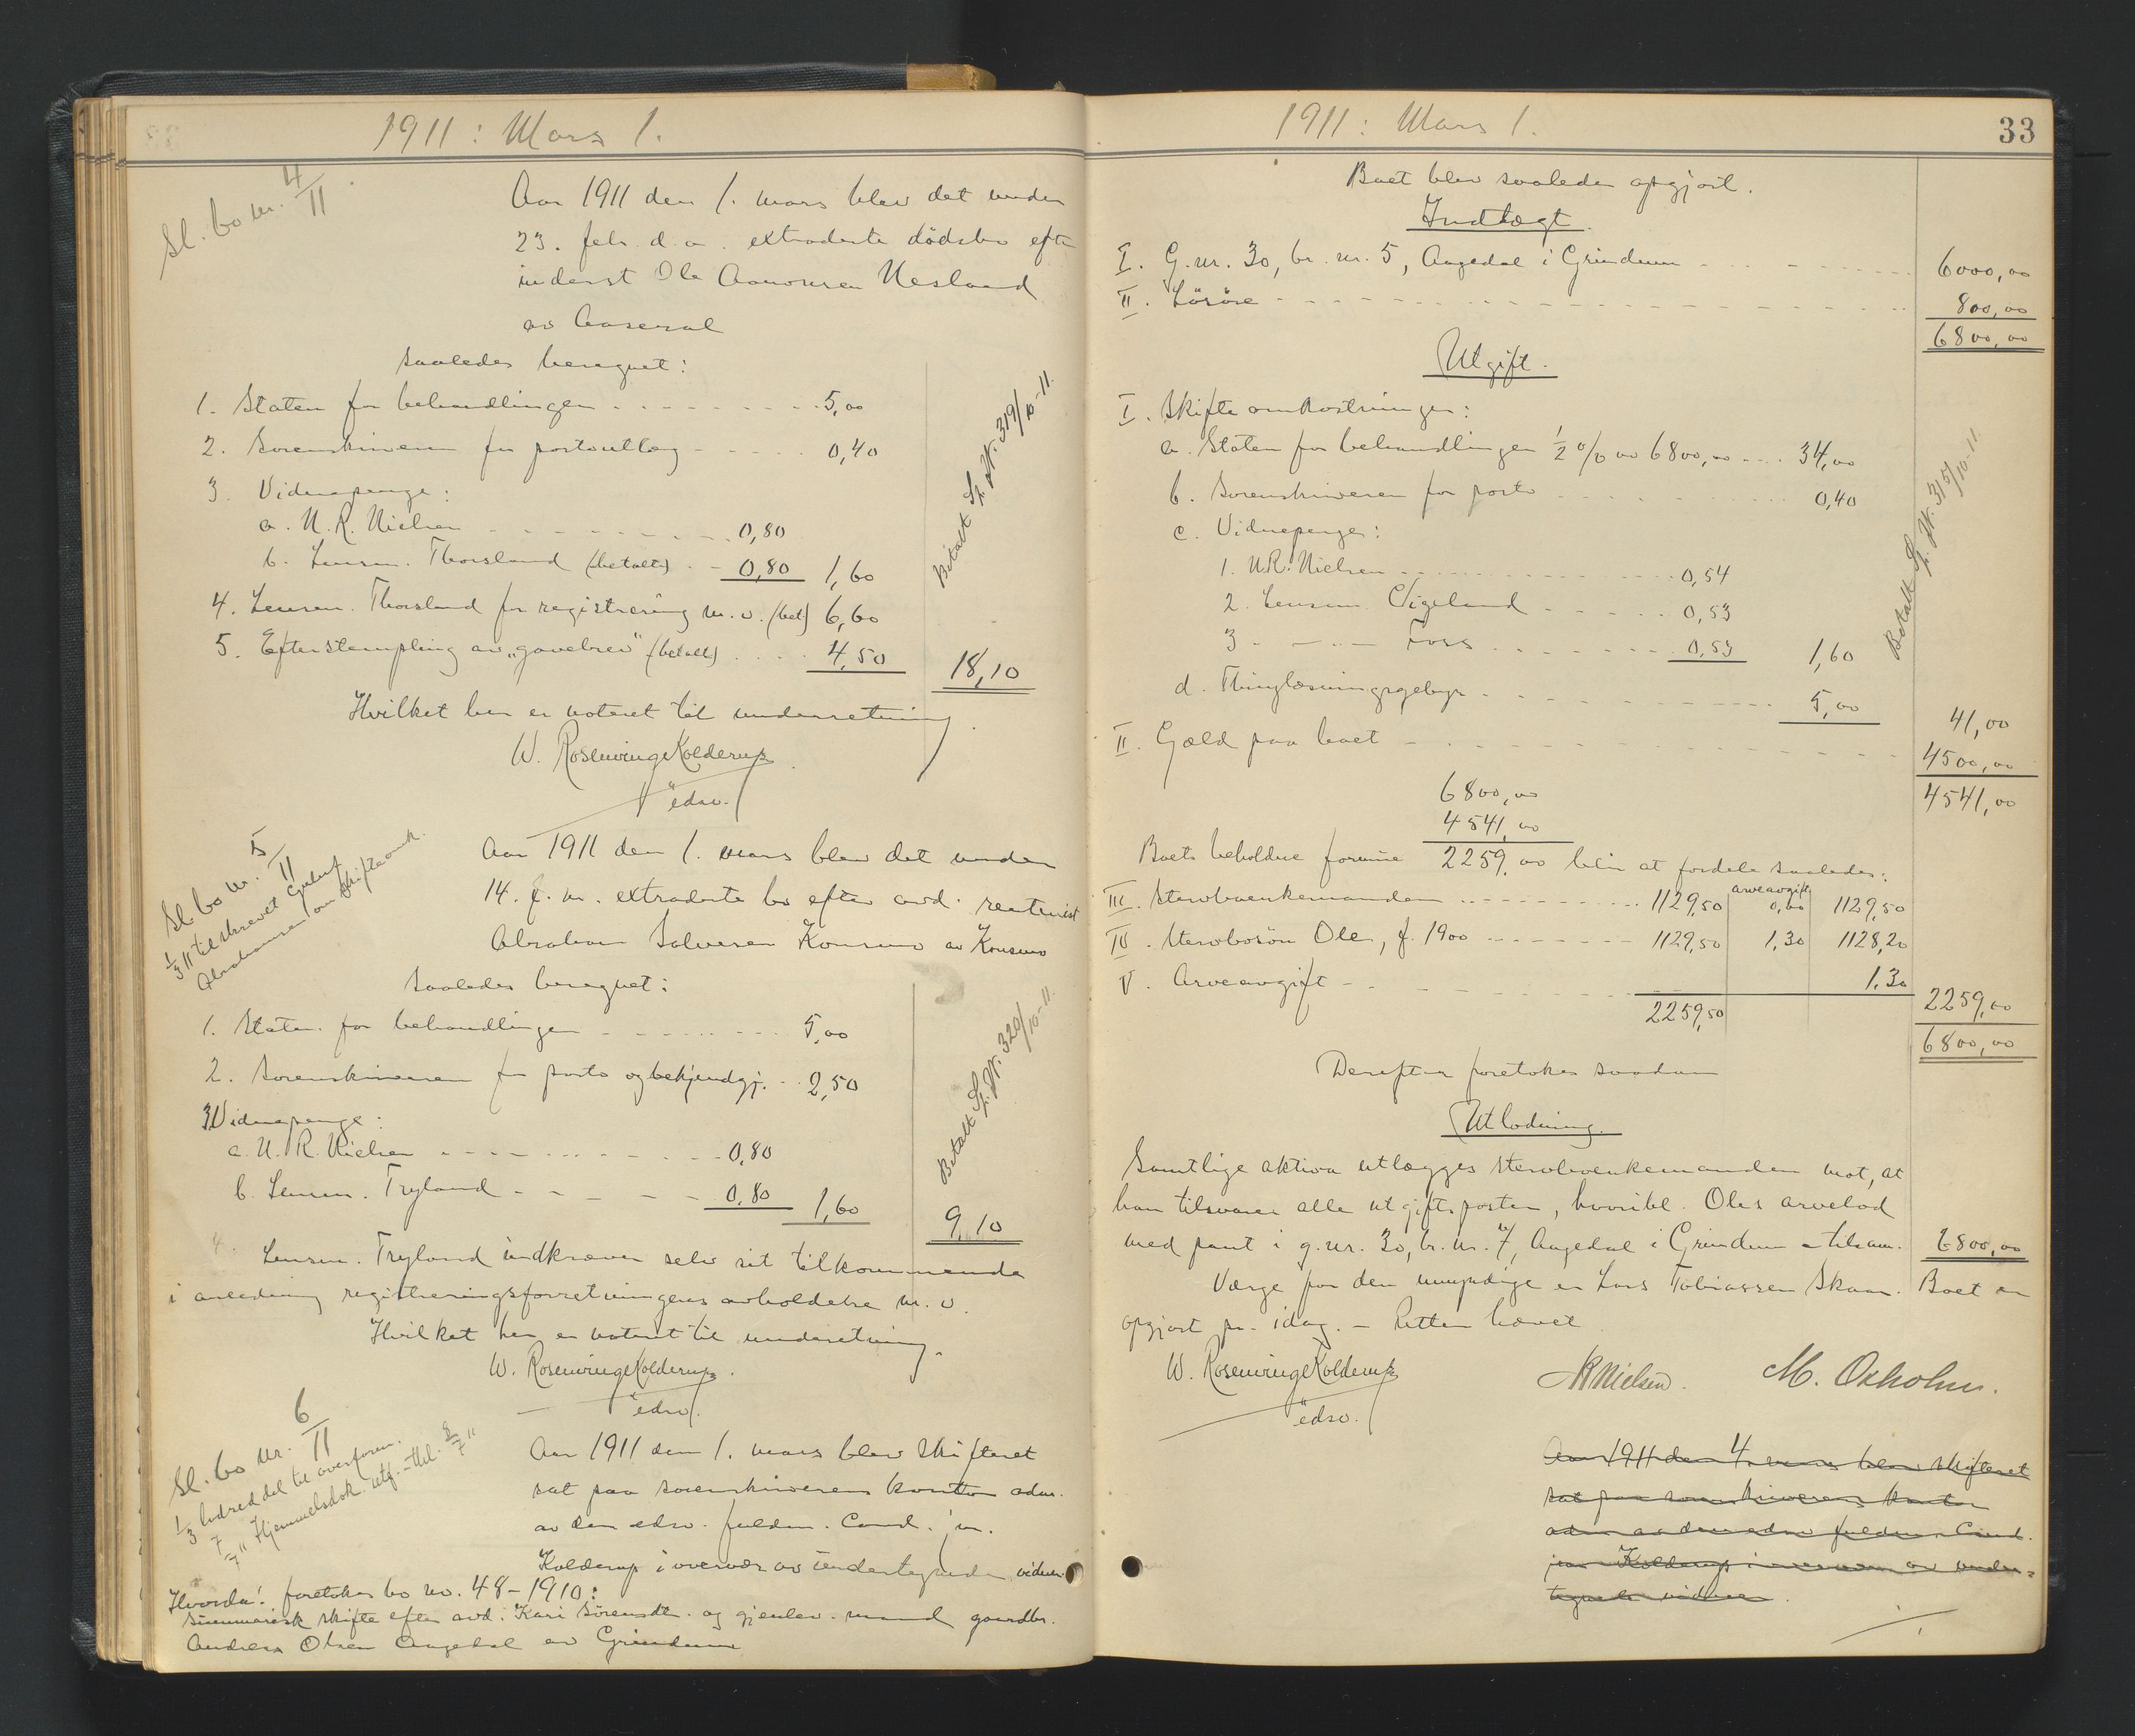 1911: Mars 1.
Sl. bo nr. 4/11
Aar 1911 den 1. mars blev det under
23. febr. d.a. extraderte dödsbo efter
inderst Ole Aanonsen Nesland
av Aaseral
saaledes beregnet:
1. Staten for behandlingen 5,00
2. Sorenskriveren for portoutlæg 0,40
3. Vidnepenge:
a. N. R. Nielsen 0,80
b. Lensm. Thorsland (betalt) 0,80 1,60
4. Lensm. Thorsland for registrering m.v. (bet) 6,60
5. Efterstempling av "gavebrev" (betalt) 4,50 18,10
Betalt Sp. J. Nr. 319/10-11.
Hvilket her er noteret til underretning.
W. Rosenvinge Kolderup
edsv.
Sl. bo nr. 5/11
1/3 11 tilskrevet
Abrahamsen om skifteomk.
Aar 1911 den 1. mars blev det under
14. f.m. extraderte bo efter avd. rentenist
Abraham Salvesen Konsmo av Konsmo
saaledes beregnet:
1. Staten for behandlingen 5,00
2. Sorenskriveren for porto og bekjendtgj. 2,50
3. Vidnepenge:
a. N. R. Nielsen 0,80
b. Lensm. Tryland 0,80 1,60
9,10
Betalt Sp. J. Nr. 320/10-11.
Lensm. Tryland indkræver selv sit tilkommende
i anledning registreringsforretningens avholdelse m.v.
Hvilket her er noteret til underretning.
W. Rosenvinge Kolderup.
edsv.
Sl. bo nr. 6/11
1/3 utdrag del til overform.
7/7 11 Hjemmelsdok. utf. - thl. 8/7 11
Aar 1911 den 1. mars blev skifteret
sat paa sorenskriverens kontor adm.
av den edsv. fuldm. Cand. jur.
Kolderup i overvær av undertegnede vidner
Hvorda: foretokes bo nr. 48-1910:
Summarisk skifte efter avd. Kari Sörensdt. og gjenlev. mand gaardbr.
Andreas Olsen Aagedal av Grindum
1911: Mars 1.
33
Boet blev saaledes opgjort.
Indtægt.
I. G.nr. 30, br.nr. 5, Aagedal i Grindum 6000,00
II. Lösöre 800,00
6800,00
Utgift.
I. Skifteomkostninger:
a. Staten for behandlingen 1/2 % av 6800,00 34,00
b. Sorenskriveren for porto 0,40
c. Vidnepenge:
1. N.R. Nielsen 0,54
2. Lensm. Vigeland 0,53
3. —"— Foss 0,53 1,60
d. Thinglæsningsgebyr 5,00 41,00
Betalt Sp. J. Nr. 315/10-11.
II. Gjæld paa boet 4500,00
6800,00 4541,00
4541,00
Boets beholdne formue 2259,00 blir at fordele saaledes:
arveavgift
III. Stervboenkemanden 1129,50 0,00 1129,50
IV. Stervbosön Ole, f. 1900 1129,50 1,30 1128,20
V. Arveavgift 1,30
2259,50 2259,00
6800,00
Derefter foretokes saadan
Utlodning.
Samtlige aktiva utlægges stervboenkemanden mot, at
han tilsvarer alle utgiftsposter, hvoribl. Oles arvelod
med pant i g.nr. 30, br.nr. 7, Aagedal i Grindum = tilsam. 6800,00
Værge for den umyndige er Lars Tobiassen Skaar. Boet er
opgjort pr. idag. – Retten hævet
W. Rosenvinge Kolderup
edsv.
NR Nielsen. M. Oxholm.
Aar 1911 den 4. mars blev skifteret
sat paa sorenskriverens kontor
adm av den edsv fuldm Cand.
jur Kolderup i overvær av under-
tegnede vidner